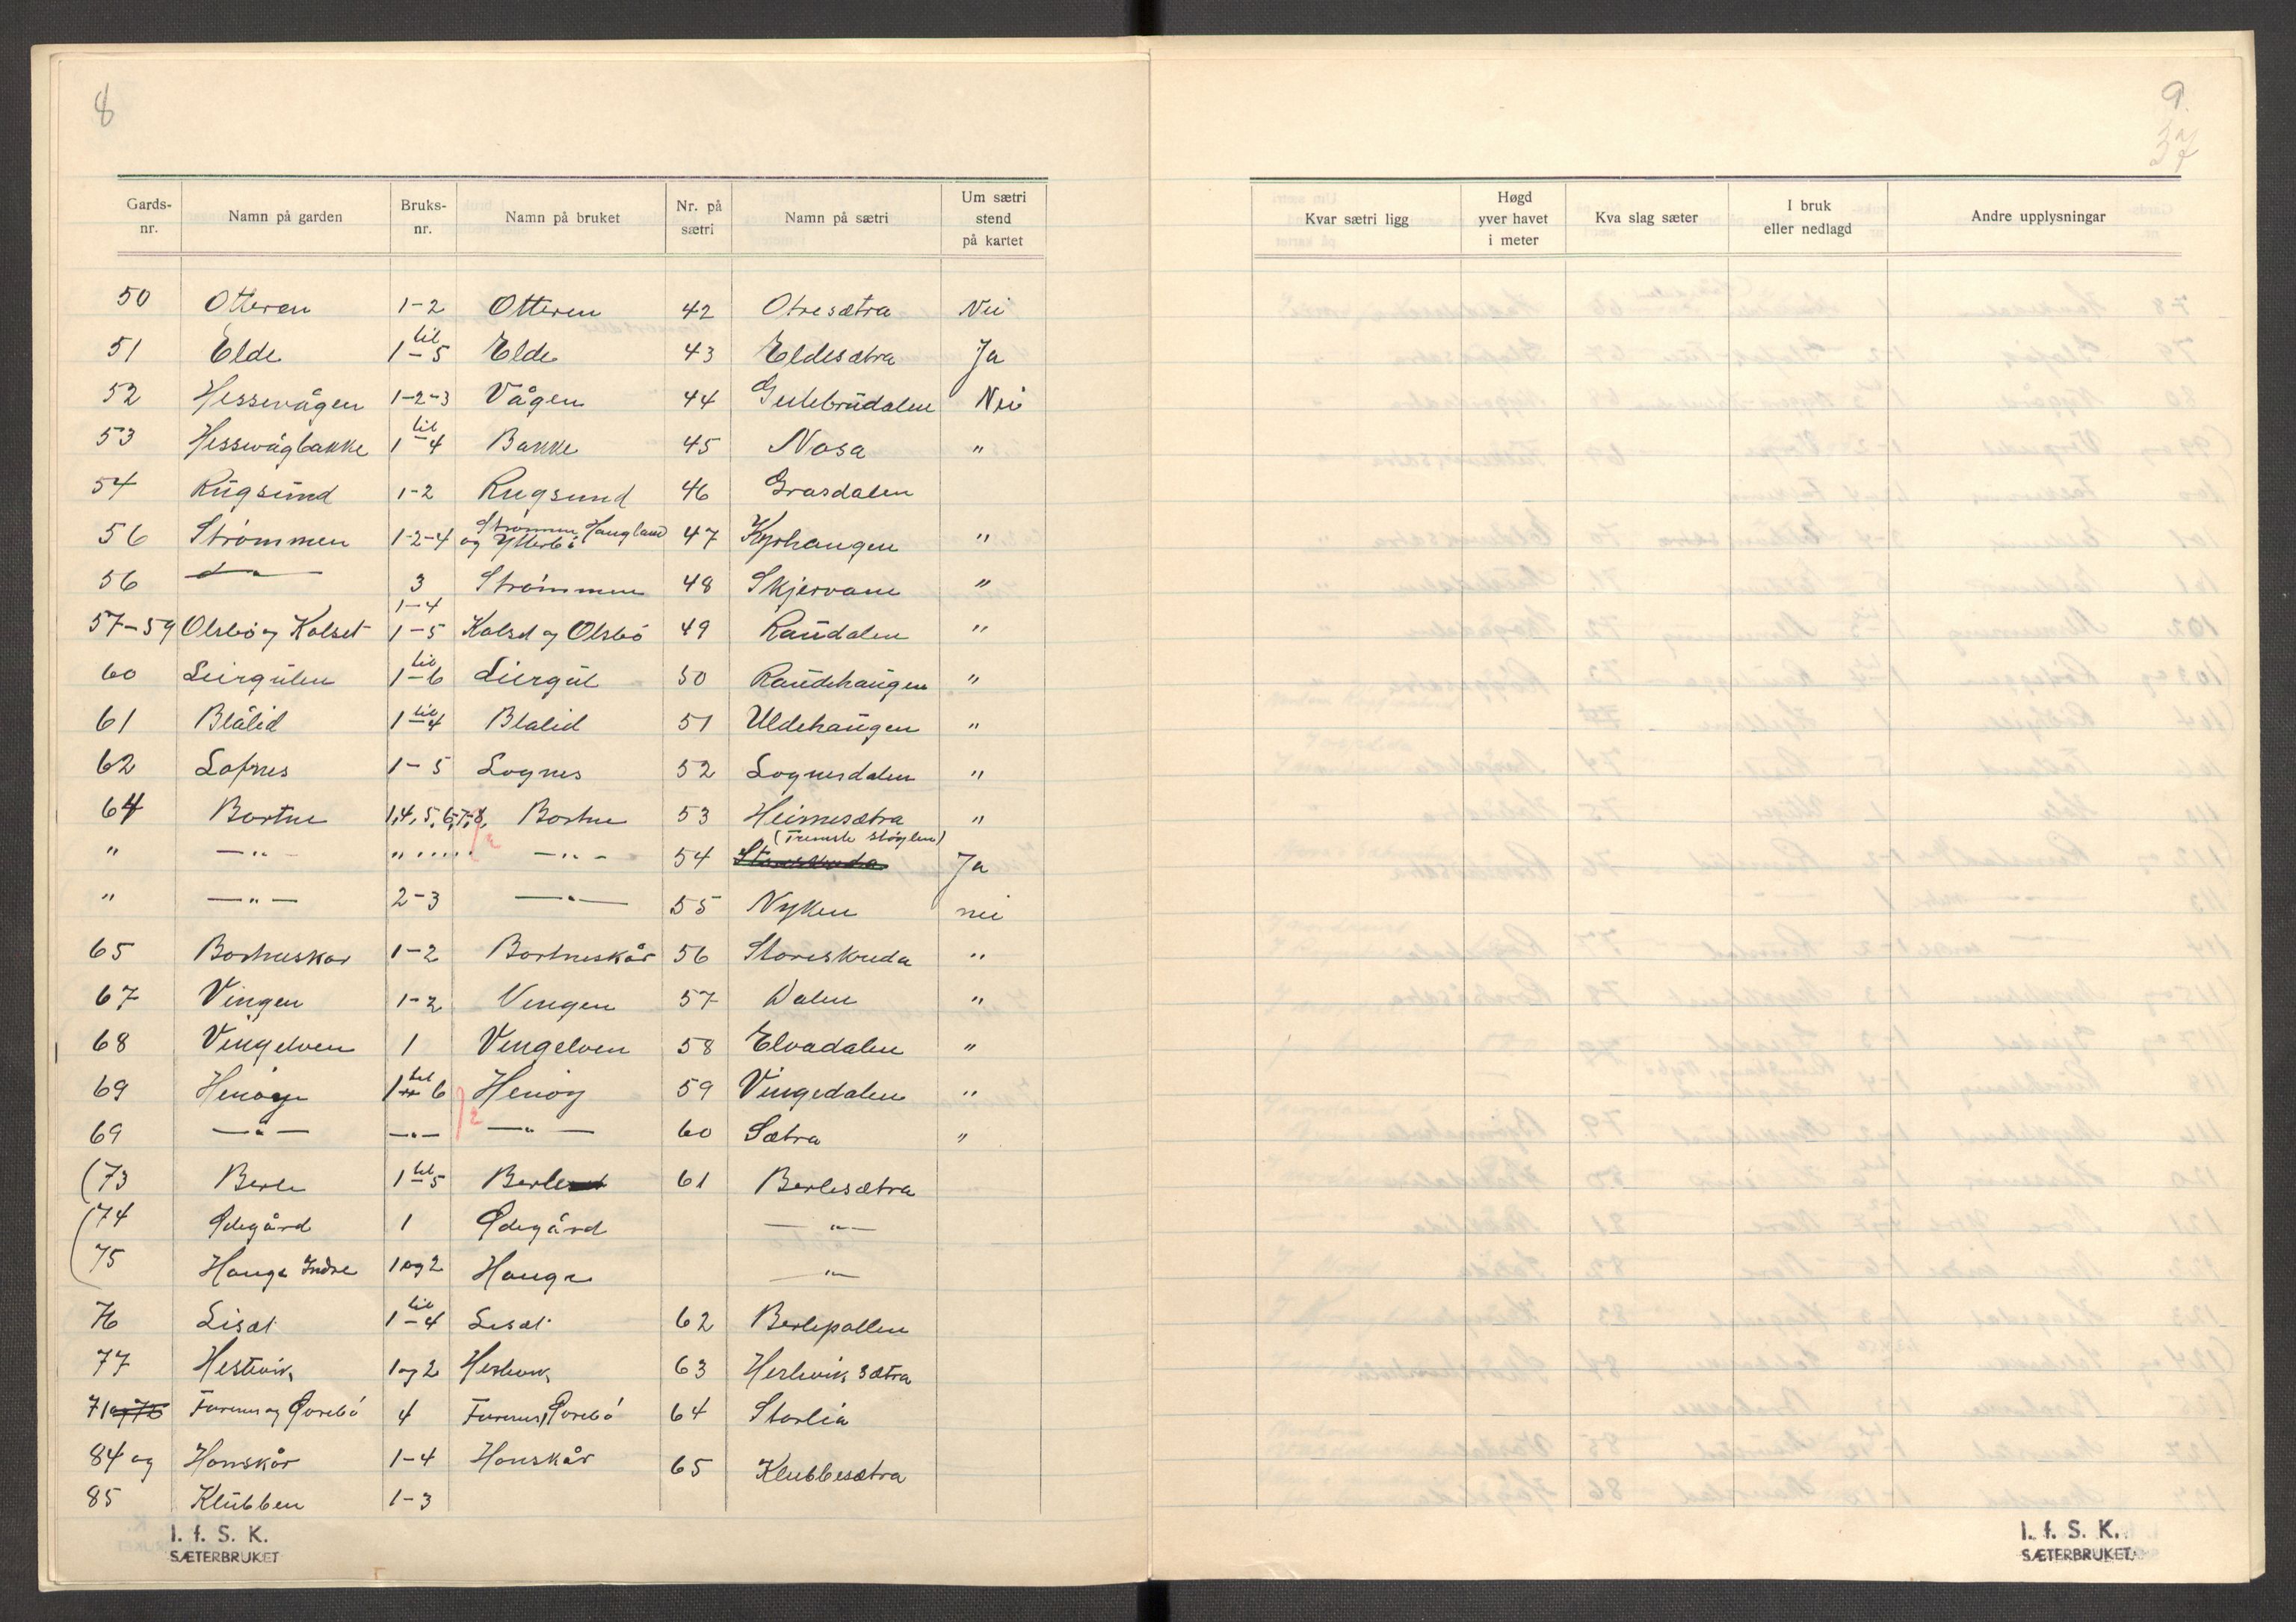 8
Gards-nr. Namn på garden Bruks-nr. Namn på bruket Nr. på sætri Namn på sætri Um sætri stend på kartet
50 Otteren 1-2 Otteren 42 Otresætra Nei
51 Elde 1 til 5 Elde 43 Eldesætra Ja
52 Hessevågen 1-2-3 Vågen 44 Gulebrudalen Nei
53 Hessevågbakke 1 til 4 Bakke 45 Nosa "
54 Rugsund 1-2 Rugsund 46 Grasdalen
56 Strømmen 1-2-4 Strømmen Haugland og Ytterbö 47 Kyrhaugen "
56 —"— 3 Strømmen 48 Skjervane "
57-59 Olsbö og Kolset 1-4 1-5 Kolset og Olsbö 49 Raudalen "
60 Leirgulen 1 til 6 Leirgul 50 Raudehaugen "
61 Blålid 1 til 4 Blalid 51 Uldehaugen "
62 Lofnes 1-5 Lognes 52 Lognesdalen "
64 Bortne 1,4,5,6,7,8, Bortne 53 Heimesætra "
" —"— " ..... —"— 54 (Fremste støylen) Storeskuda Ja
" —"— 2-3 —"— 55 Nyken nei
65 Bortneskor 1-2 Bortneskår 56 Storeskuda "
67 Vingen 1-2 Vengen 57 Dalen "
68 Vingelven 1 Vengelven 58 Elvadalen "
69 Henøy 1 til 6 Henöy 59 Vingedalen "
69 —"— —"— —"— 60 Sætra "
(73 Berle 1 til 5 Berle 61 Berlesætra
(74 Ødegård 1 Ødegård —"—
75 Hauge Indre 1 og 2 Hauge —"—
76 Lisæt 1 til 4 Lisæt 62 Berlepollen
77 Hestevik 1 og 2 Hestevik 63 Hestevik sætra
71 og 76 Furenes og Ørebö 4 Furenes, Ørebö 64 Storlia
84 og Hamskår 1-4 Hanskår 65 Klubbesætra
85 Klubben 1-3
I. f. S. K.
SÆTERBRUKET
9.
37
Kvar sætri ligg Høgd yver havet i meter Kva slag sæter I bruk eller nedlagd Andre upplysningar
I. f. S. K.
SÆTERBRUKET